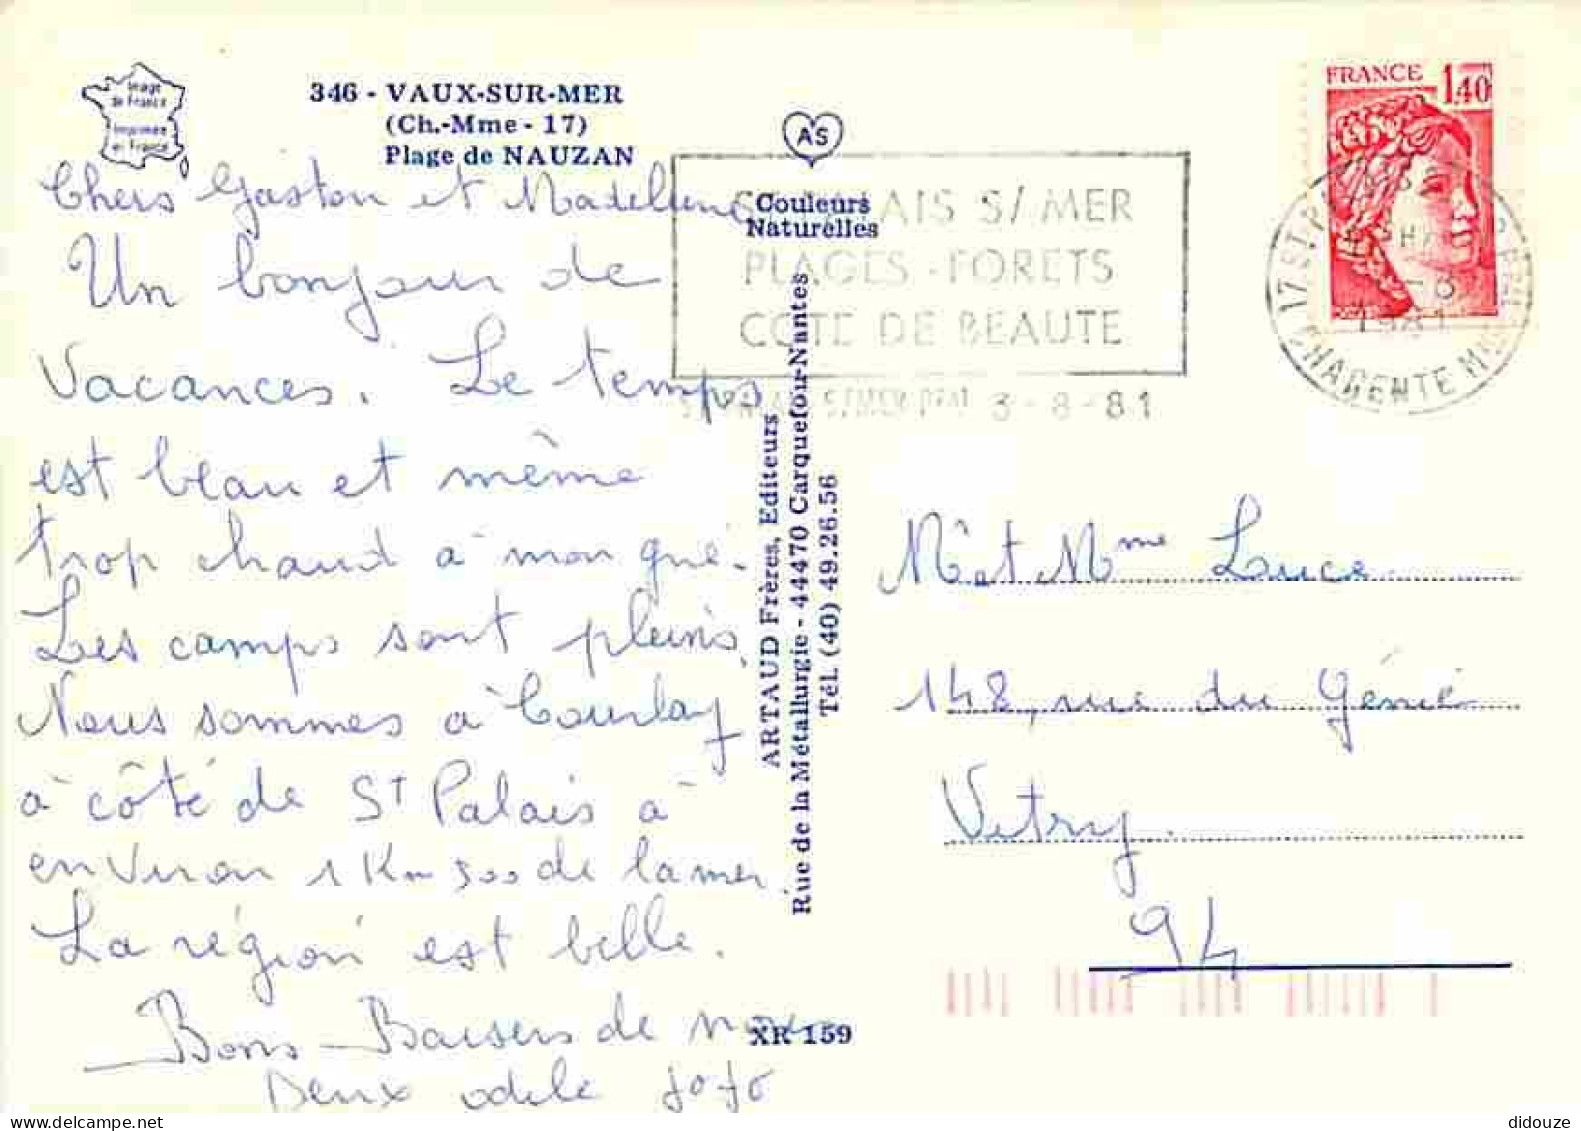 Image
de France
Imprimée
en France
346 - VAUX-SUR-MER
(Ch.-Mme - 17)
Plage de NAUZAN
Chers Gaston et Madeleine
Un bonjour de
Vacances. Le temps
est beau et même
trop chaud à mon gré.
Les camps sont pleins.
Nous sommes à Courlay
à côté de St Palais à
environ 1 Km 500 de la mer.
La région est belle.
Bons Baisers de nous
Deux odile jojo
AS
Couleurs
Naturelles
ARTAUD Frères, Editeurs
Rue de la Métallurgie - 44470 Carquefou-Nantes
Tél. (40) 49.26.56
XR 159
PALAIS S/MER
PLAGES - FORETS
COTE DE BEAUTE
S/MER PPAL 3-8-81
FRANCE 1,40
17 ST
CHARENTE
1981
M et Mme Luce
148, rue du Génie
Vitry.
94
didouze